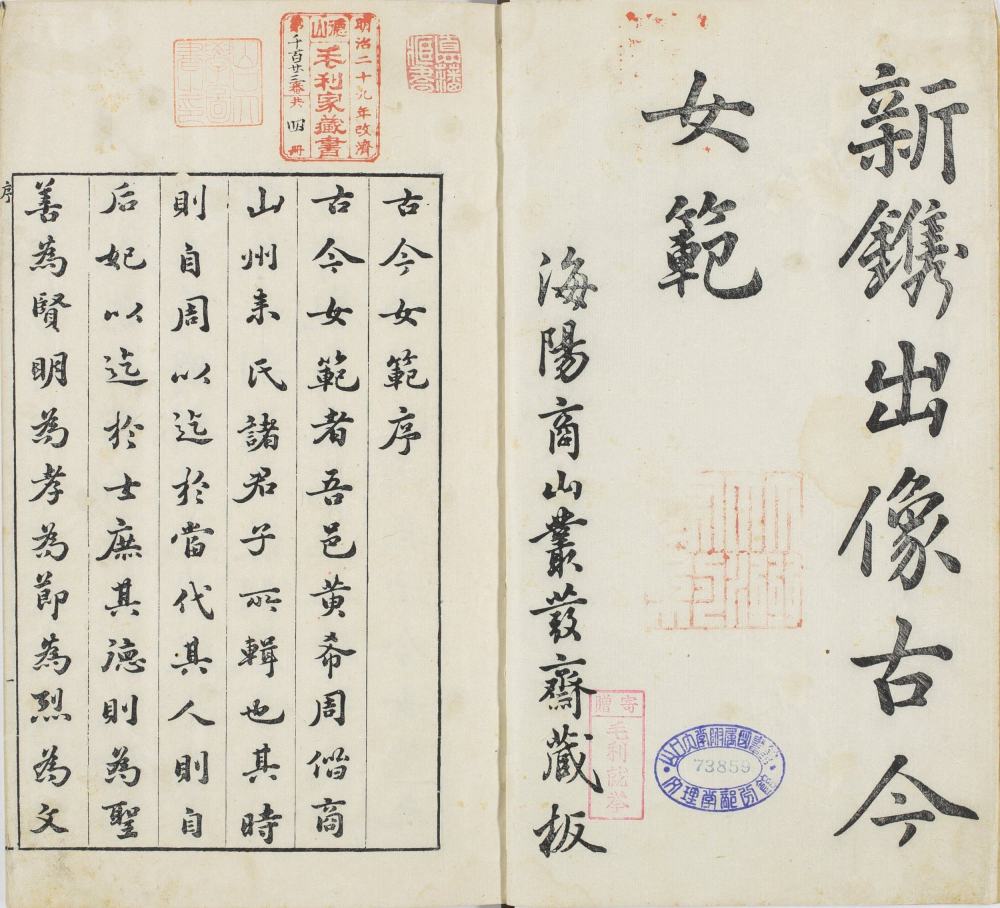 新鐫出像古今
女範
海陽商山叢蕞齋藏板
寄贈
毛利就挙
73859
明治二十九年改濟
德山
毛利家藏書
第千百廿三番共四冊
古今女範序
古今女範者吾邑黄希周偕商
山州来氏諸君子所輯也其時
則自周以迄於當代其人則自
后妃以迄於士庶其德則為聖
善為賢明為孝為節為烈為文
序
一